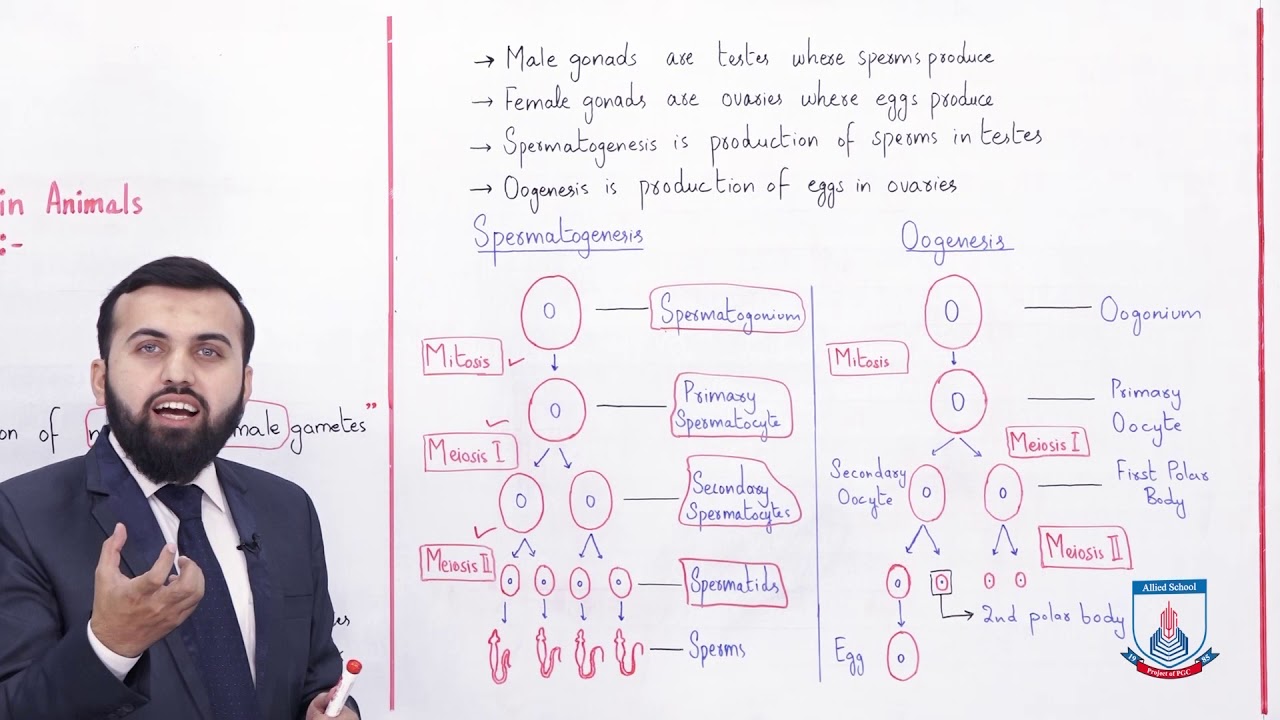 in Animals
:-
on of
male gametes”
→ Male gonads are testes where sperms produce
→ Female gonads are ovaries where eggs produce
→ Spermatogenesis is production of sperms in testes
→ Oogenesis is production of eggs in ovaries
Spermatogenesis
Spermatogonium
Mitosis
Primary
Spermatocyte
Meiosis I
Secondary
Spermatocytes
Meiosis II
Spermatids
Sperms
Oogenesis
Oogonium
Mitosis
Primary
Oocyte
Meiosis I
Secondary
Oocyte
First Polar
Body
Meiosis II
2nd polar body
Egg
Allied School
1985
Project of PGC